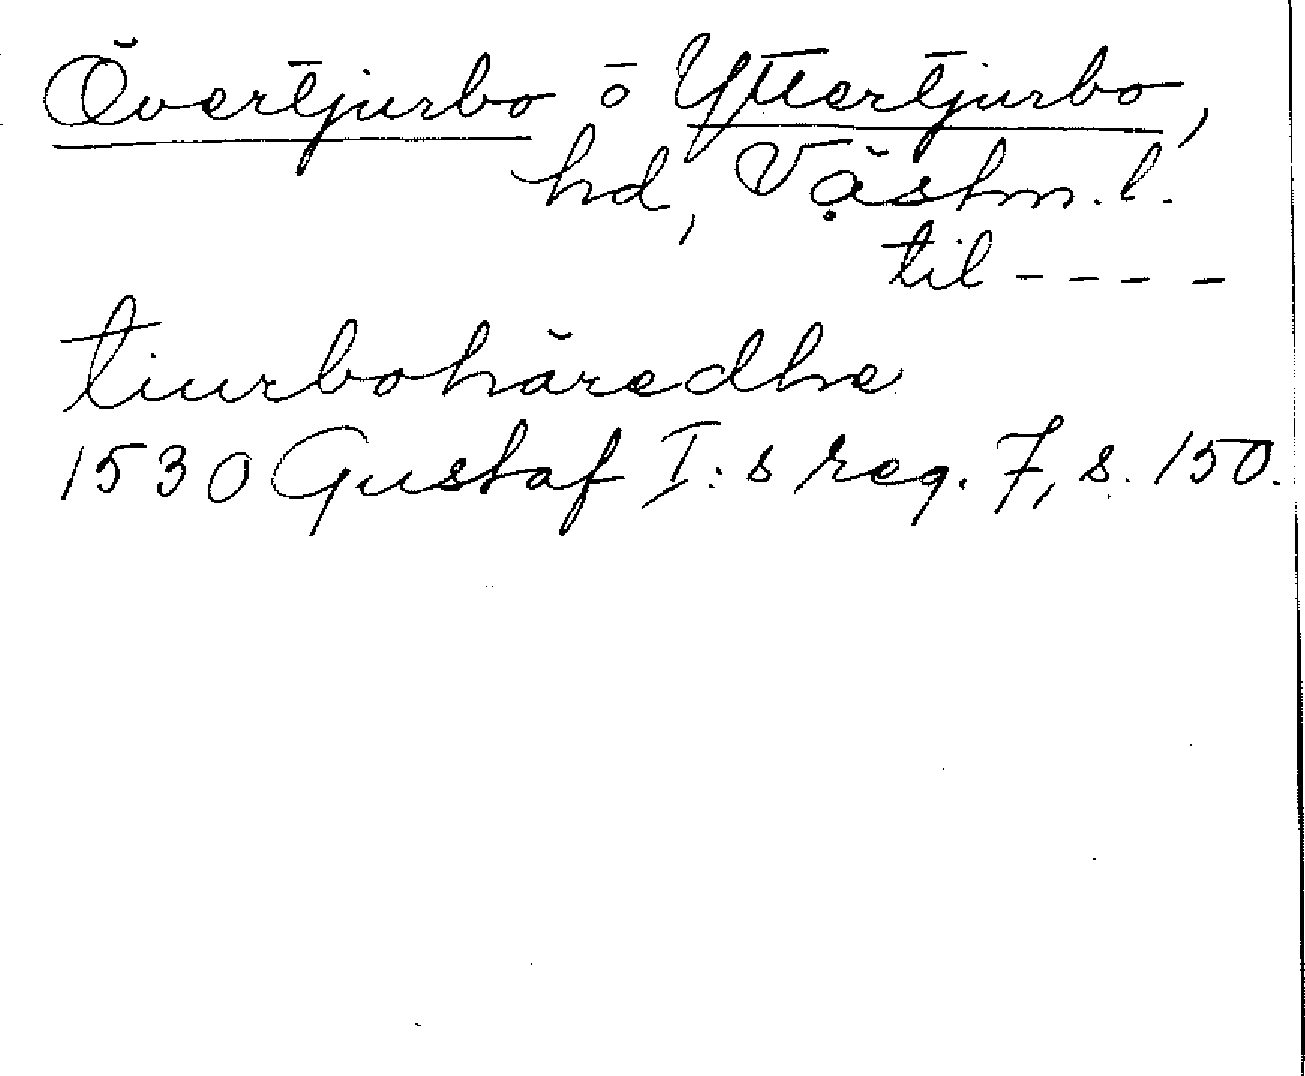 Övertjurbo o Yttertjurbo,
hd, Västm. l.
til - - - -
tiurbohäredhe
1530 Gustaf I:s reg. 7, s. 150.